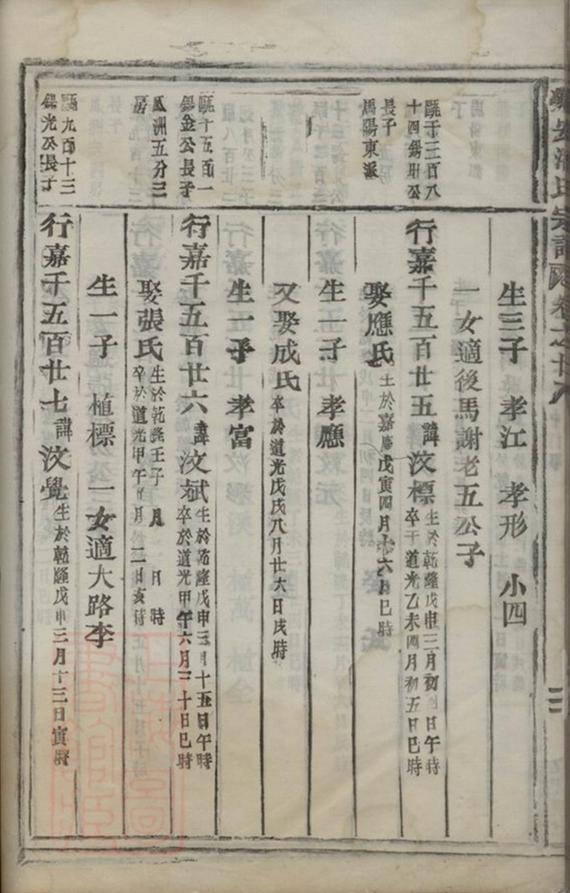 氏宗譜 卷之廿八
生三子 孝江 孝形 小四
一女適後馬謝老五公子
甌千三百八
十四錫 公
長子
馬陽東派
行嘉千五百廿五諱汶標
生於乾隆戊申三月初 日午時
卒于道光乙未四月初五日巳時
娶應氏生於嘉慶戊寅四月十六日巳時
生一子 孝應
又娶成氏卒於道光戊戌八月廿六日戌時
生一子 孝富
甌千五百一
錫金公長子
瓜洲五分三
房
行嘉千五百廿六諱汶斌
生於乾隆戊申三月十五日午時
卒於道光甲午六月二十日巳時
娶張氏
生於乾隆壬子 月 日 時
卒於道光甲午 月 二日亥時
生一子 植標 一女適大路李
甌九百十三
錫光公長子
行嘉千五百廿七諱汶覺生於乾隆戊申三月十三日寅時